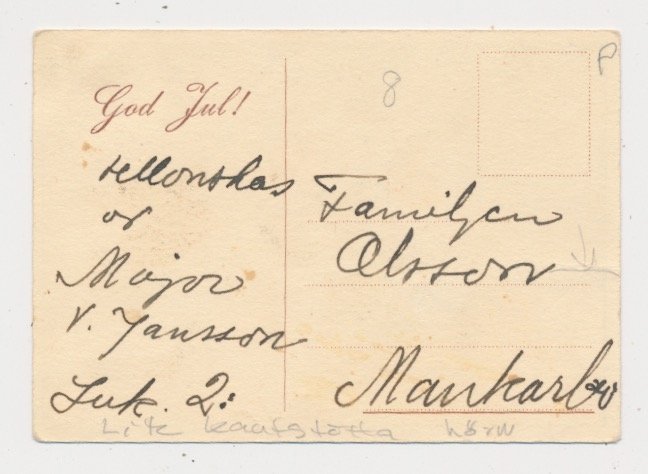 God Jul!
tillönskas
av
Major
V. Jansson
Luk. 2:
8
P
Familjen
Olsson
Mankarbo
Lite kantstötta hörn